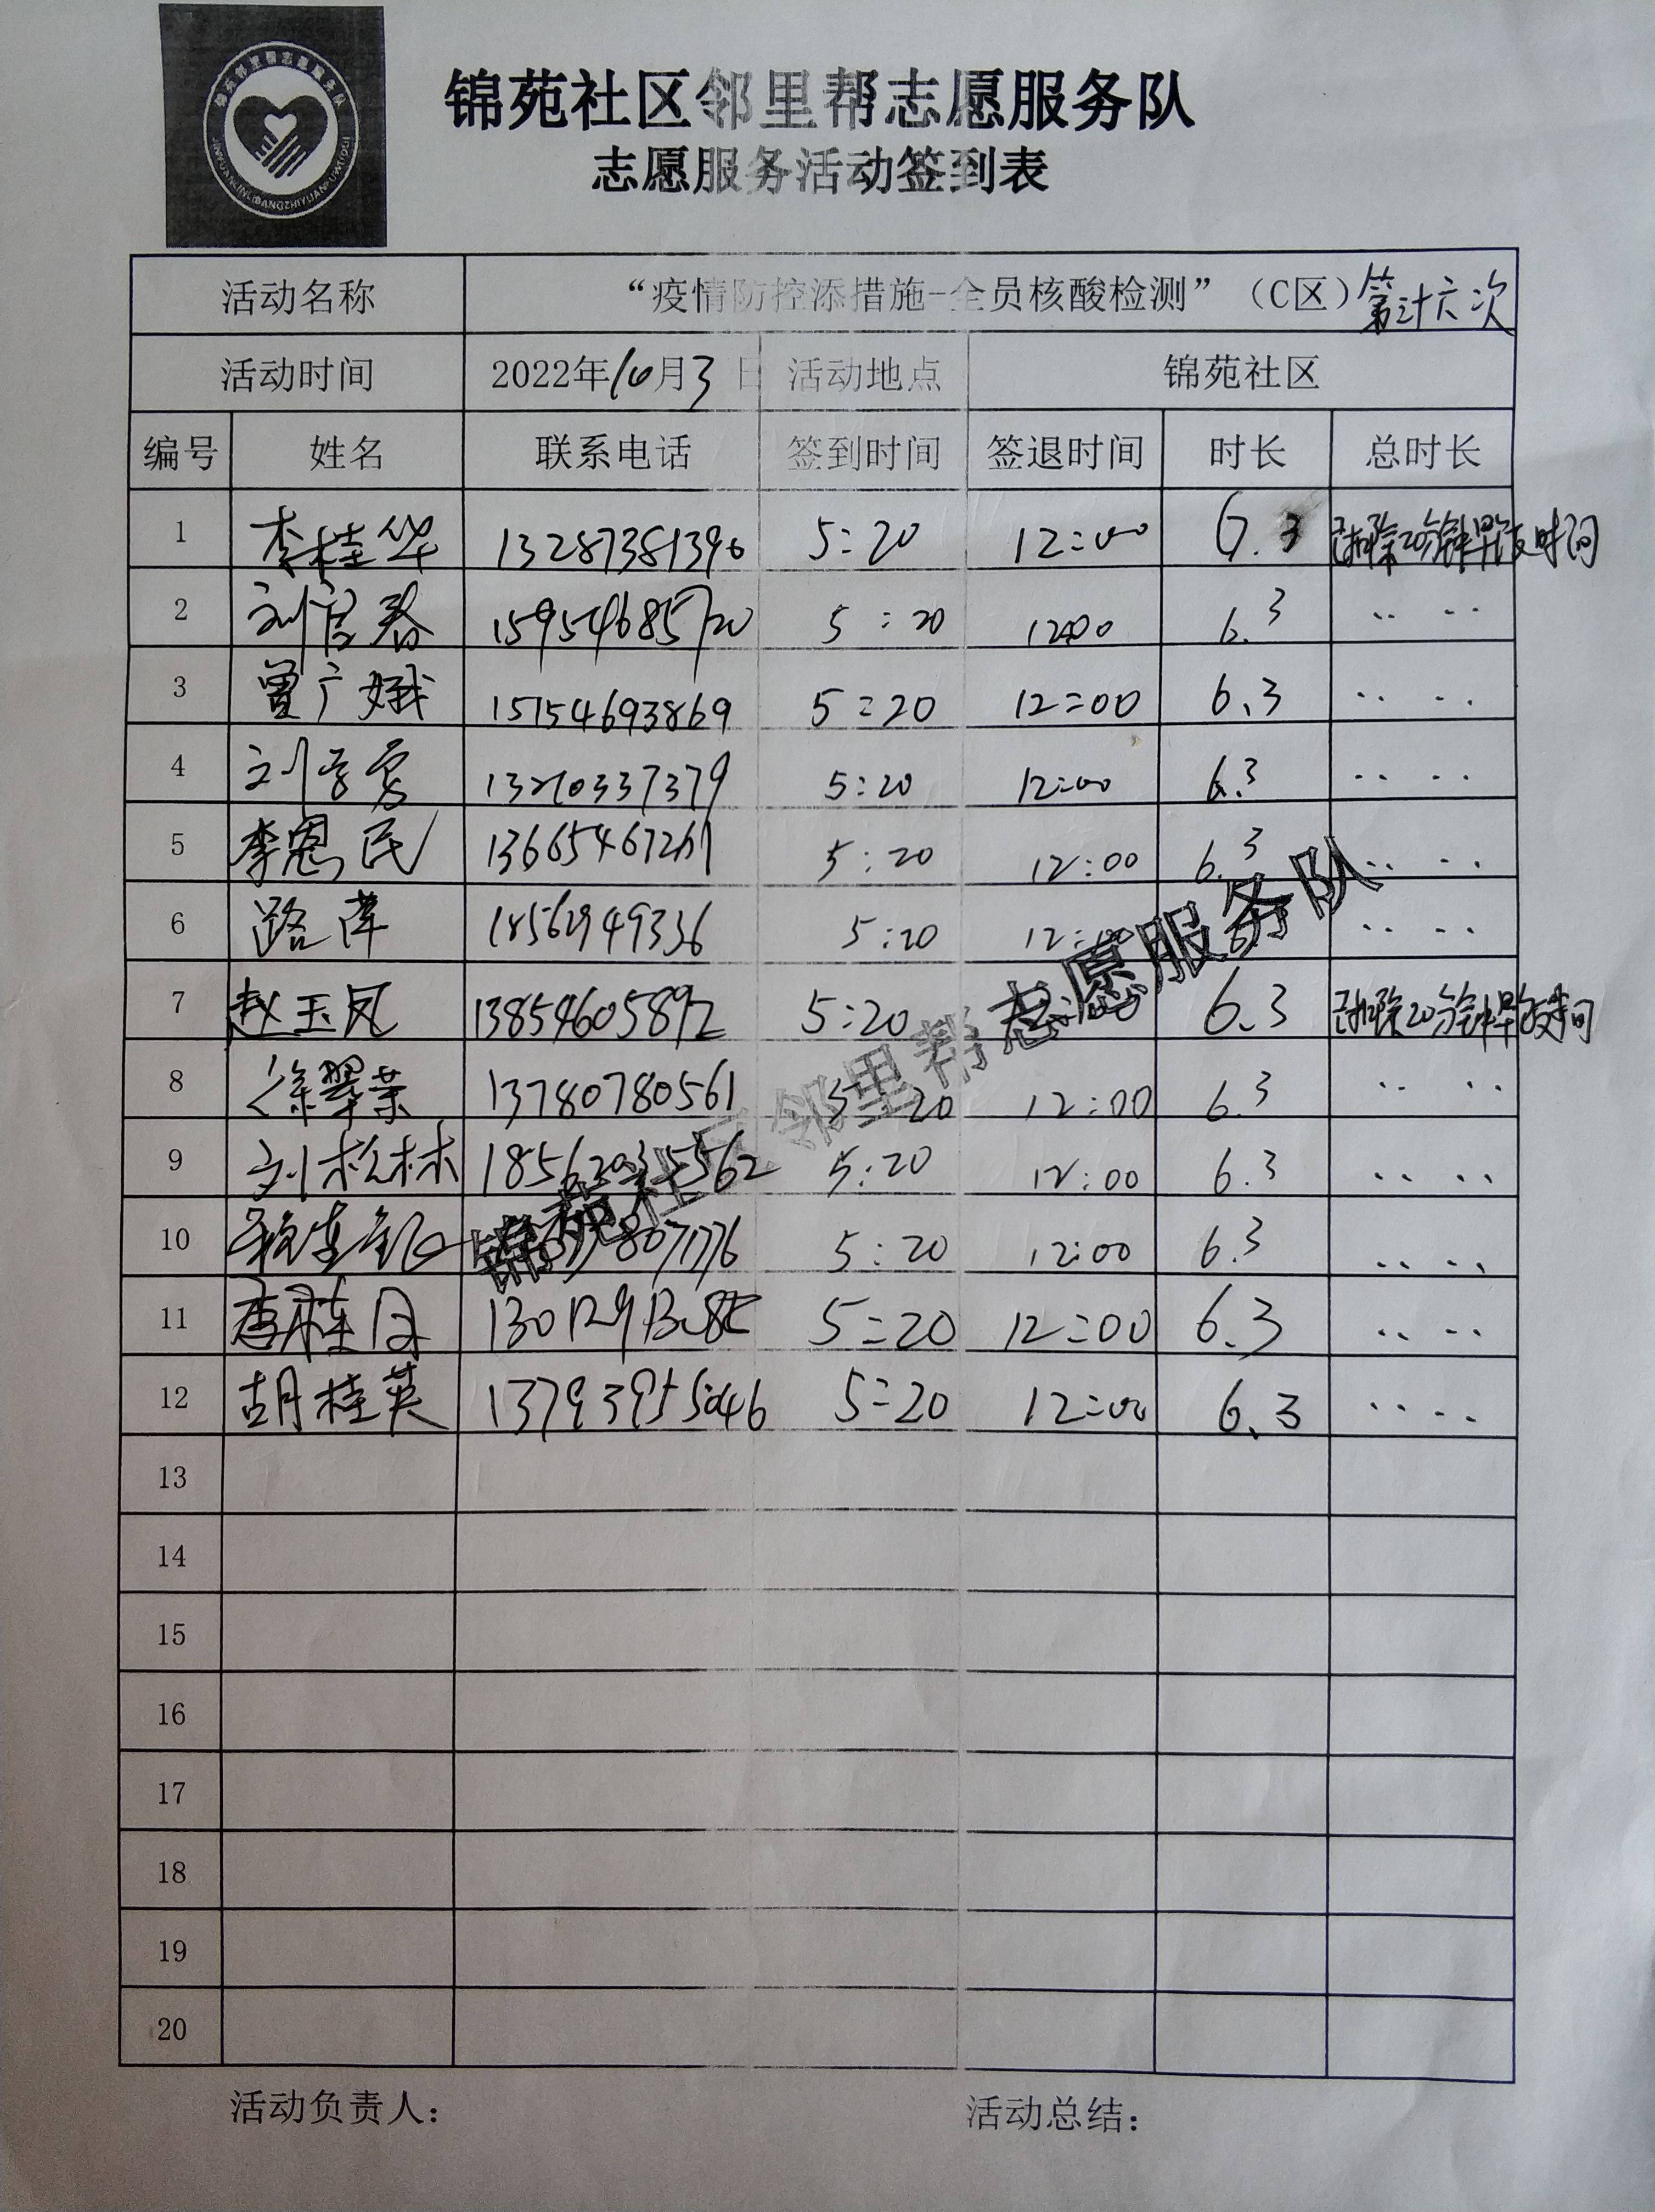 锦苑社区邻里帮志愿服务队
志愿服务活动签到表
活动名称 “疫情防控添措施-全员核酸检测”（C区）第三十六次
活动时间 2022年10月3日 活动地点 锦苑社区
编号 姓名 联系电话 签到时间 签退时间 时长 总时长
1 李桂华 13287381390 5:20 12:00 6.3 已扣除20分钟早饭时间
2 刘官春 15954685720 5:20 12:00 6.3 ·· ··
3 曾广娥 15154693869 5:20 12:00 6.3 ·· ··
4 13210337379 5:20 12:00 6.3 ·· ··
5 李恩民 13665467261 5:20 12:00 6.3 ·· ··
6 路萍 18562949336 5:20 12:00 ·· ··
7 赵玉凤 13854605892 5:20 6.3 已扣除20分钟早饭时间
8 徐翠荣 13780780561 5:20 12:00 6.3 ·· ··
9 刘松林 5:20 12:00 6.3 ·· ··
10 5:20 12:00 6.3 ·· ··
11 5:20 12:00 6.3 ·· ··
12 胡桂英 13793955046 5:20 12:00 6.3 ·· ··
13
14
15
16
17
18
19
20
锦苑社区邻里帮志愿服务队
活动负责人： 活动总结：